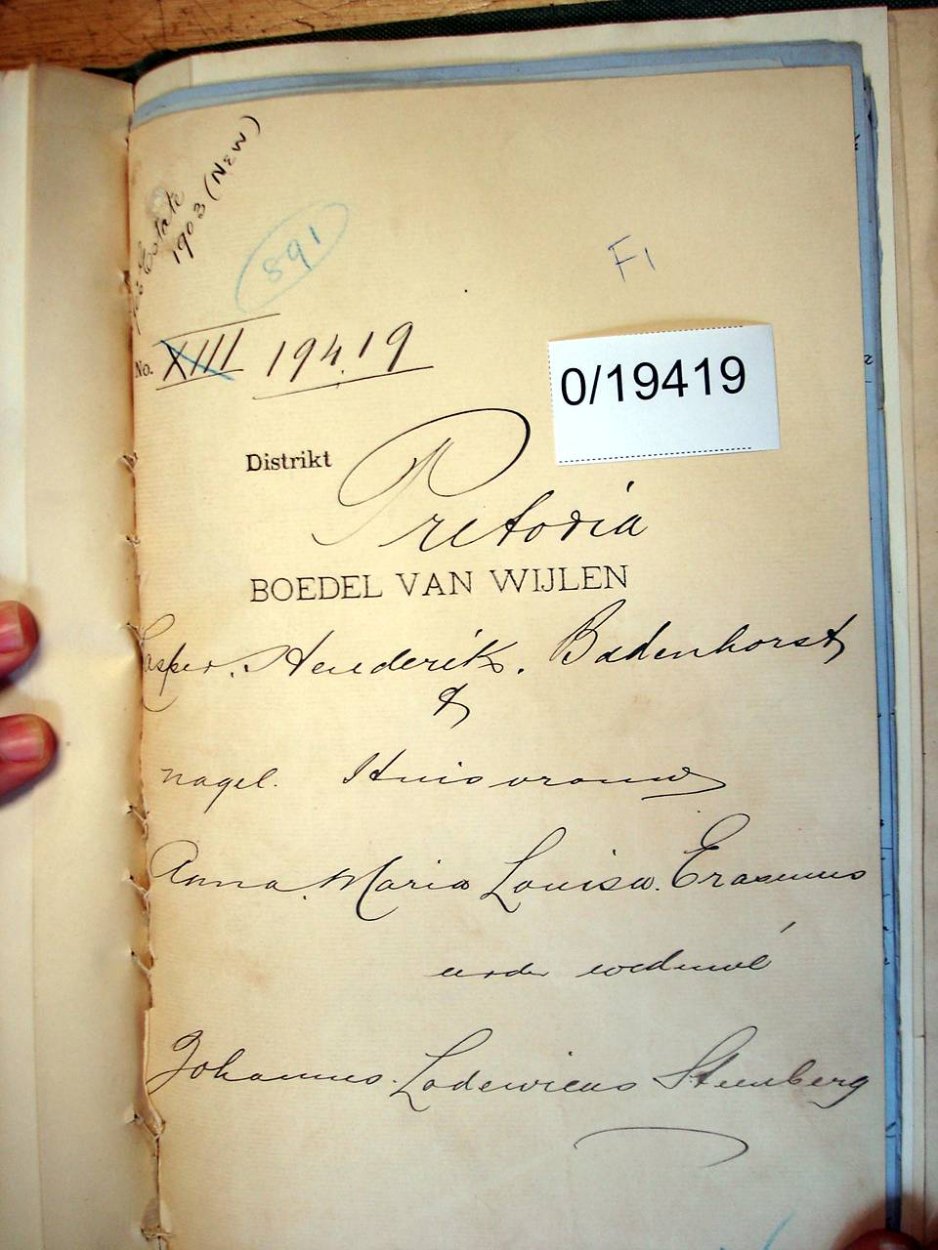 Estate
1903 (NEW)
891
F1
No. XIII 19419
0/19419
Distrikt
Pretoria
BOEDEL VAN WIJLEN
Casper Henderik Badenhorst
&
nagel. Huisvrouw
Anna Maria Louisa Erasmus
eerder wedewé
Johannes Lodewicus Steenberg